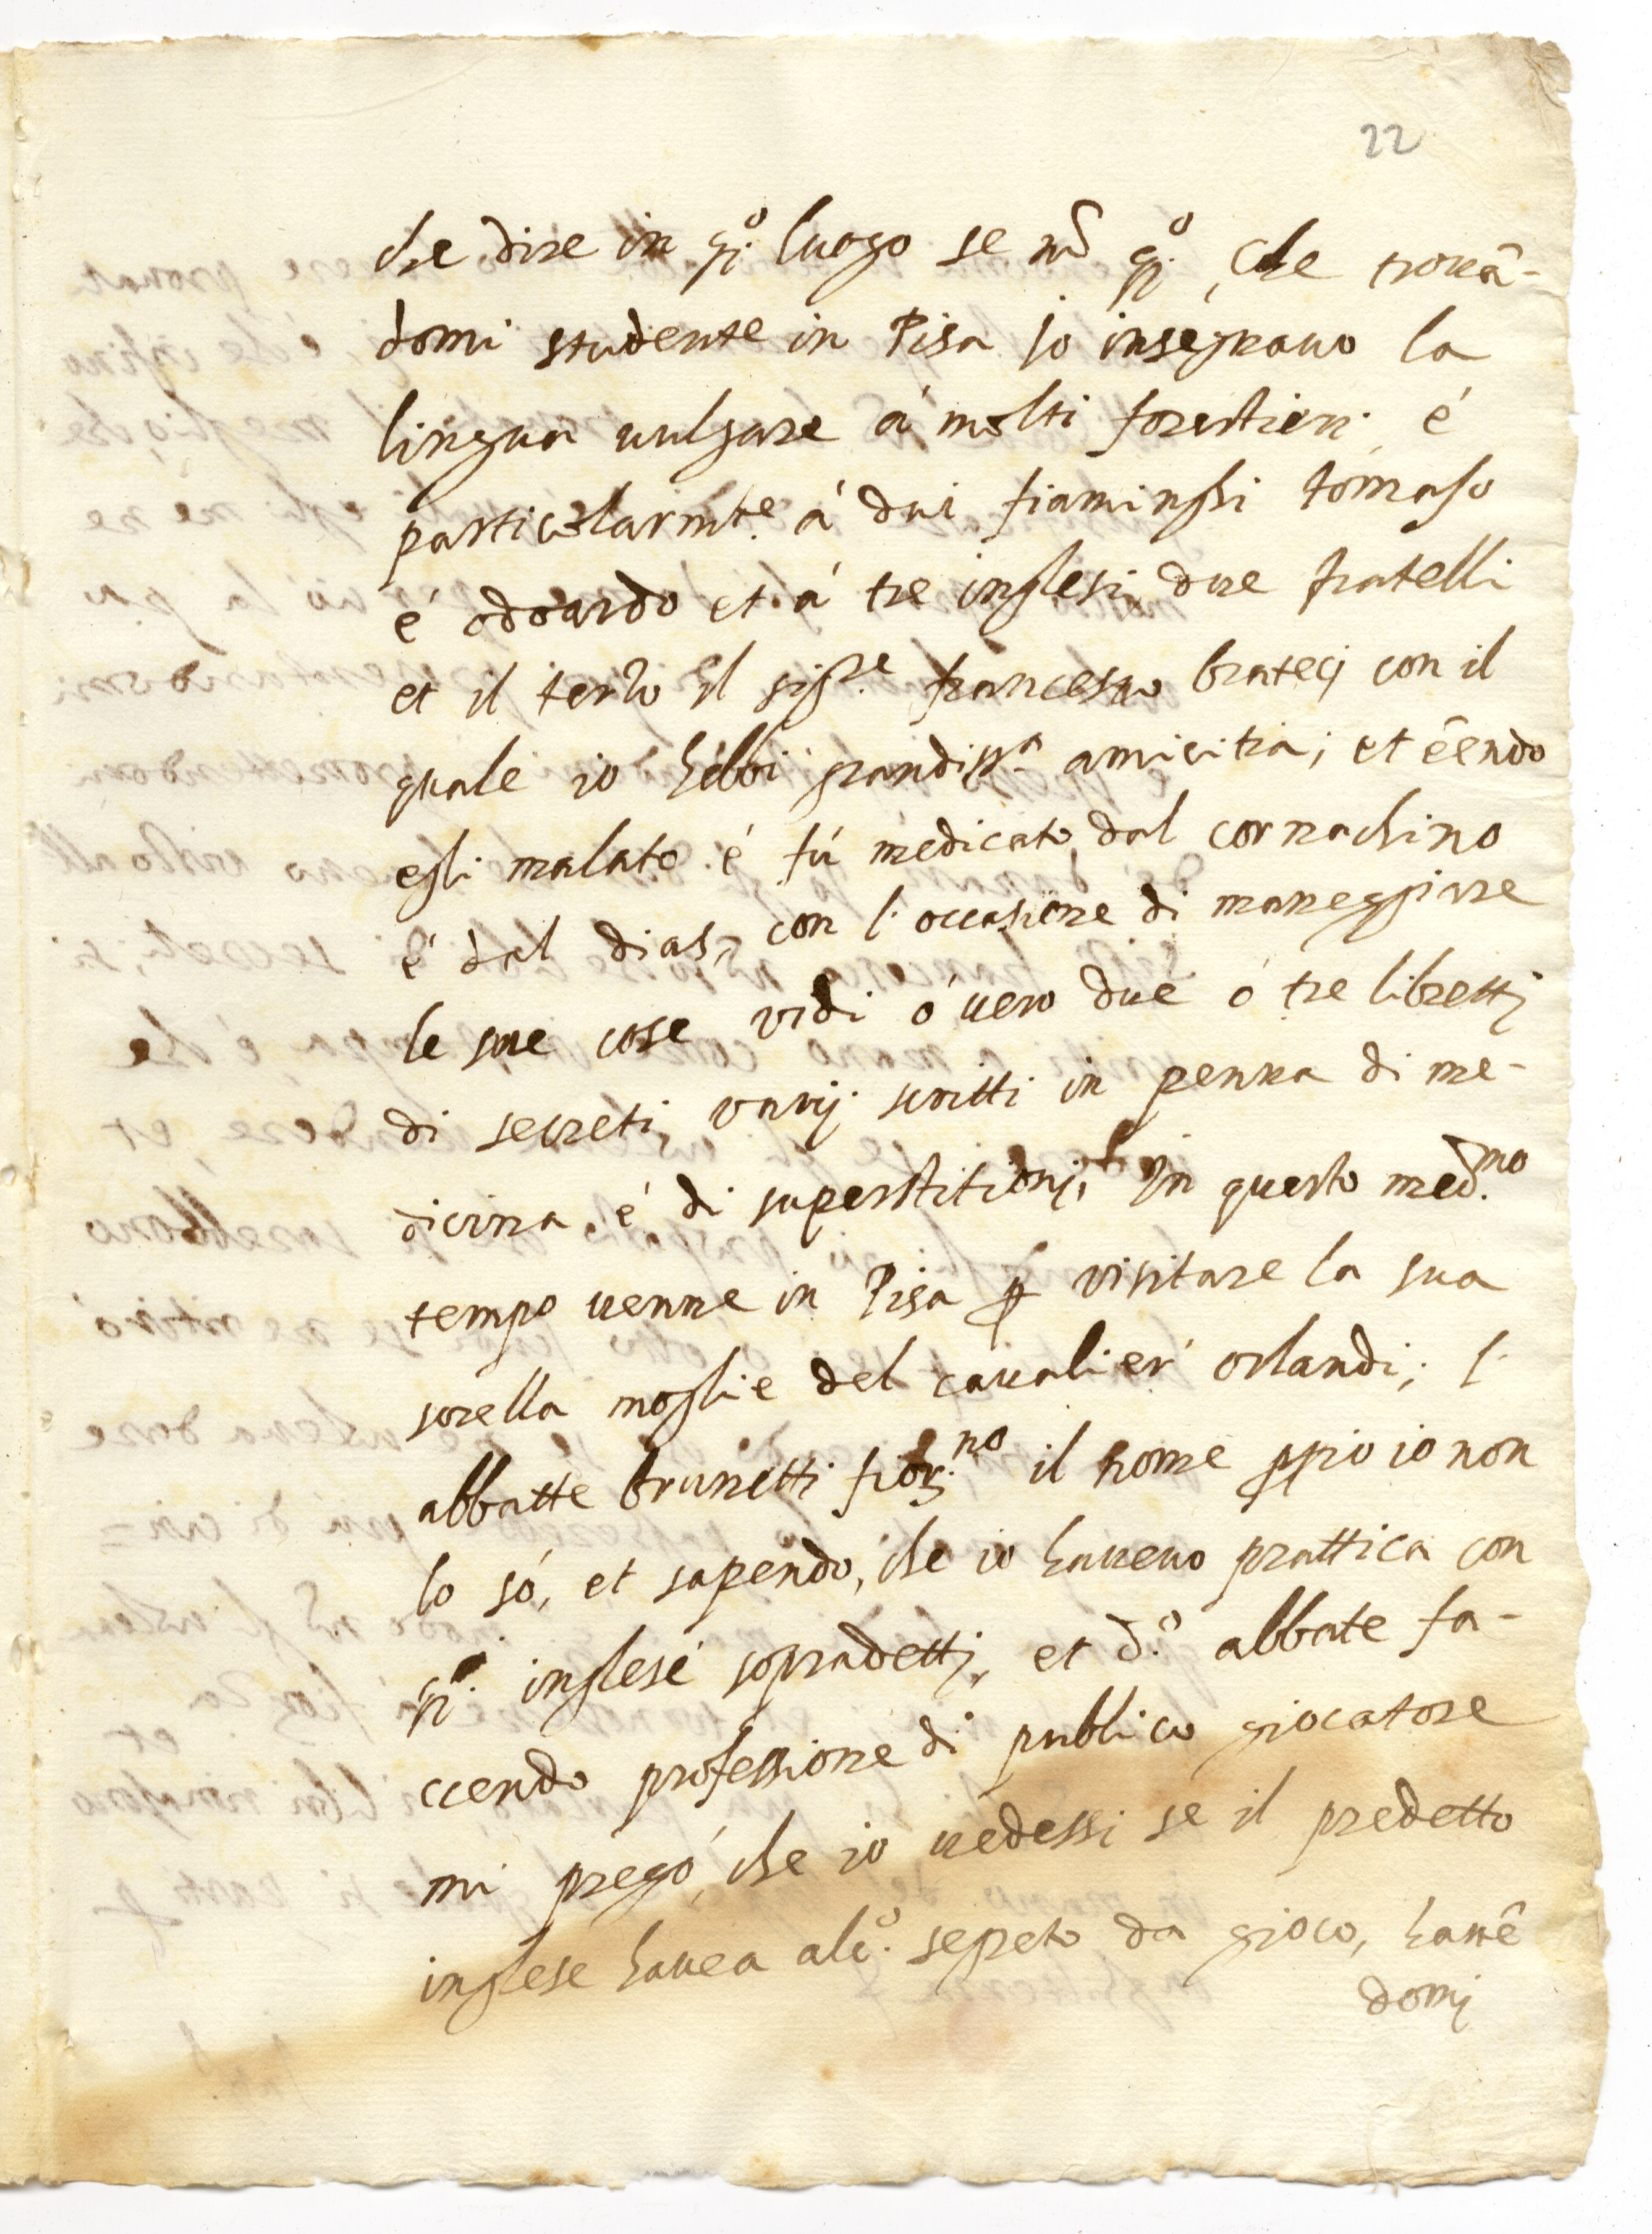 22
che dire in q.o luogo se nõ q.o, che trouã-
domi studente in Pisa io insegnauo la
lingua uulgare á molti forestieri é
particolarmte. á dui fiaminghi tomaso
é odoardo et á tre inglesi, due fratelli
et il terzo il sig.re francesco brateci con il
quale io hebbi grandiss.a amicitia; et eẽndo
egli malato é fú medicato dal cornachino
é dal dias, con l'occasione di maneggiare
le sue cose vidi ó uero due ó tre libretti
di secreti varij scritti in penna di me-
dicina é di superstitioni, In questo med.mo
tempo uenne in Pisa ꝑ visitare la sua
sorella moglie del caualier orlandi; l'
abbatte brunetti fior.no il nome ꝓpio io non
lo só, et sapendo, che io haueuo prattica con
q.i inglesi sopradetti, et d.o abbate fa-
ccendo professione di publico giocatore
mi pregó, che io uedessi se il predetto
inglese hauea alc.o segreto da gioco, hauẽ
domi